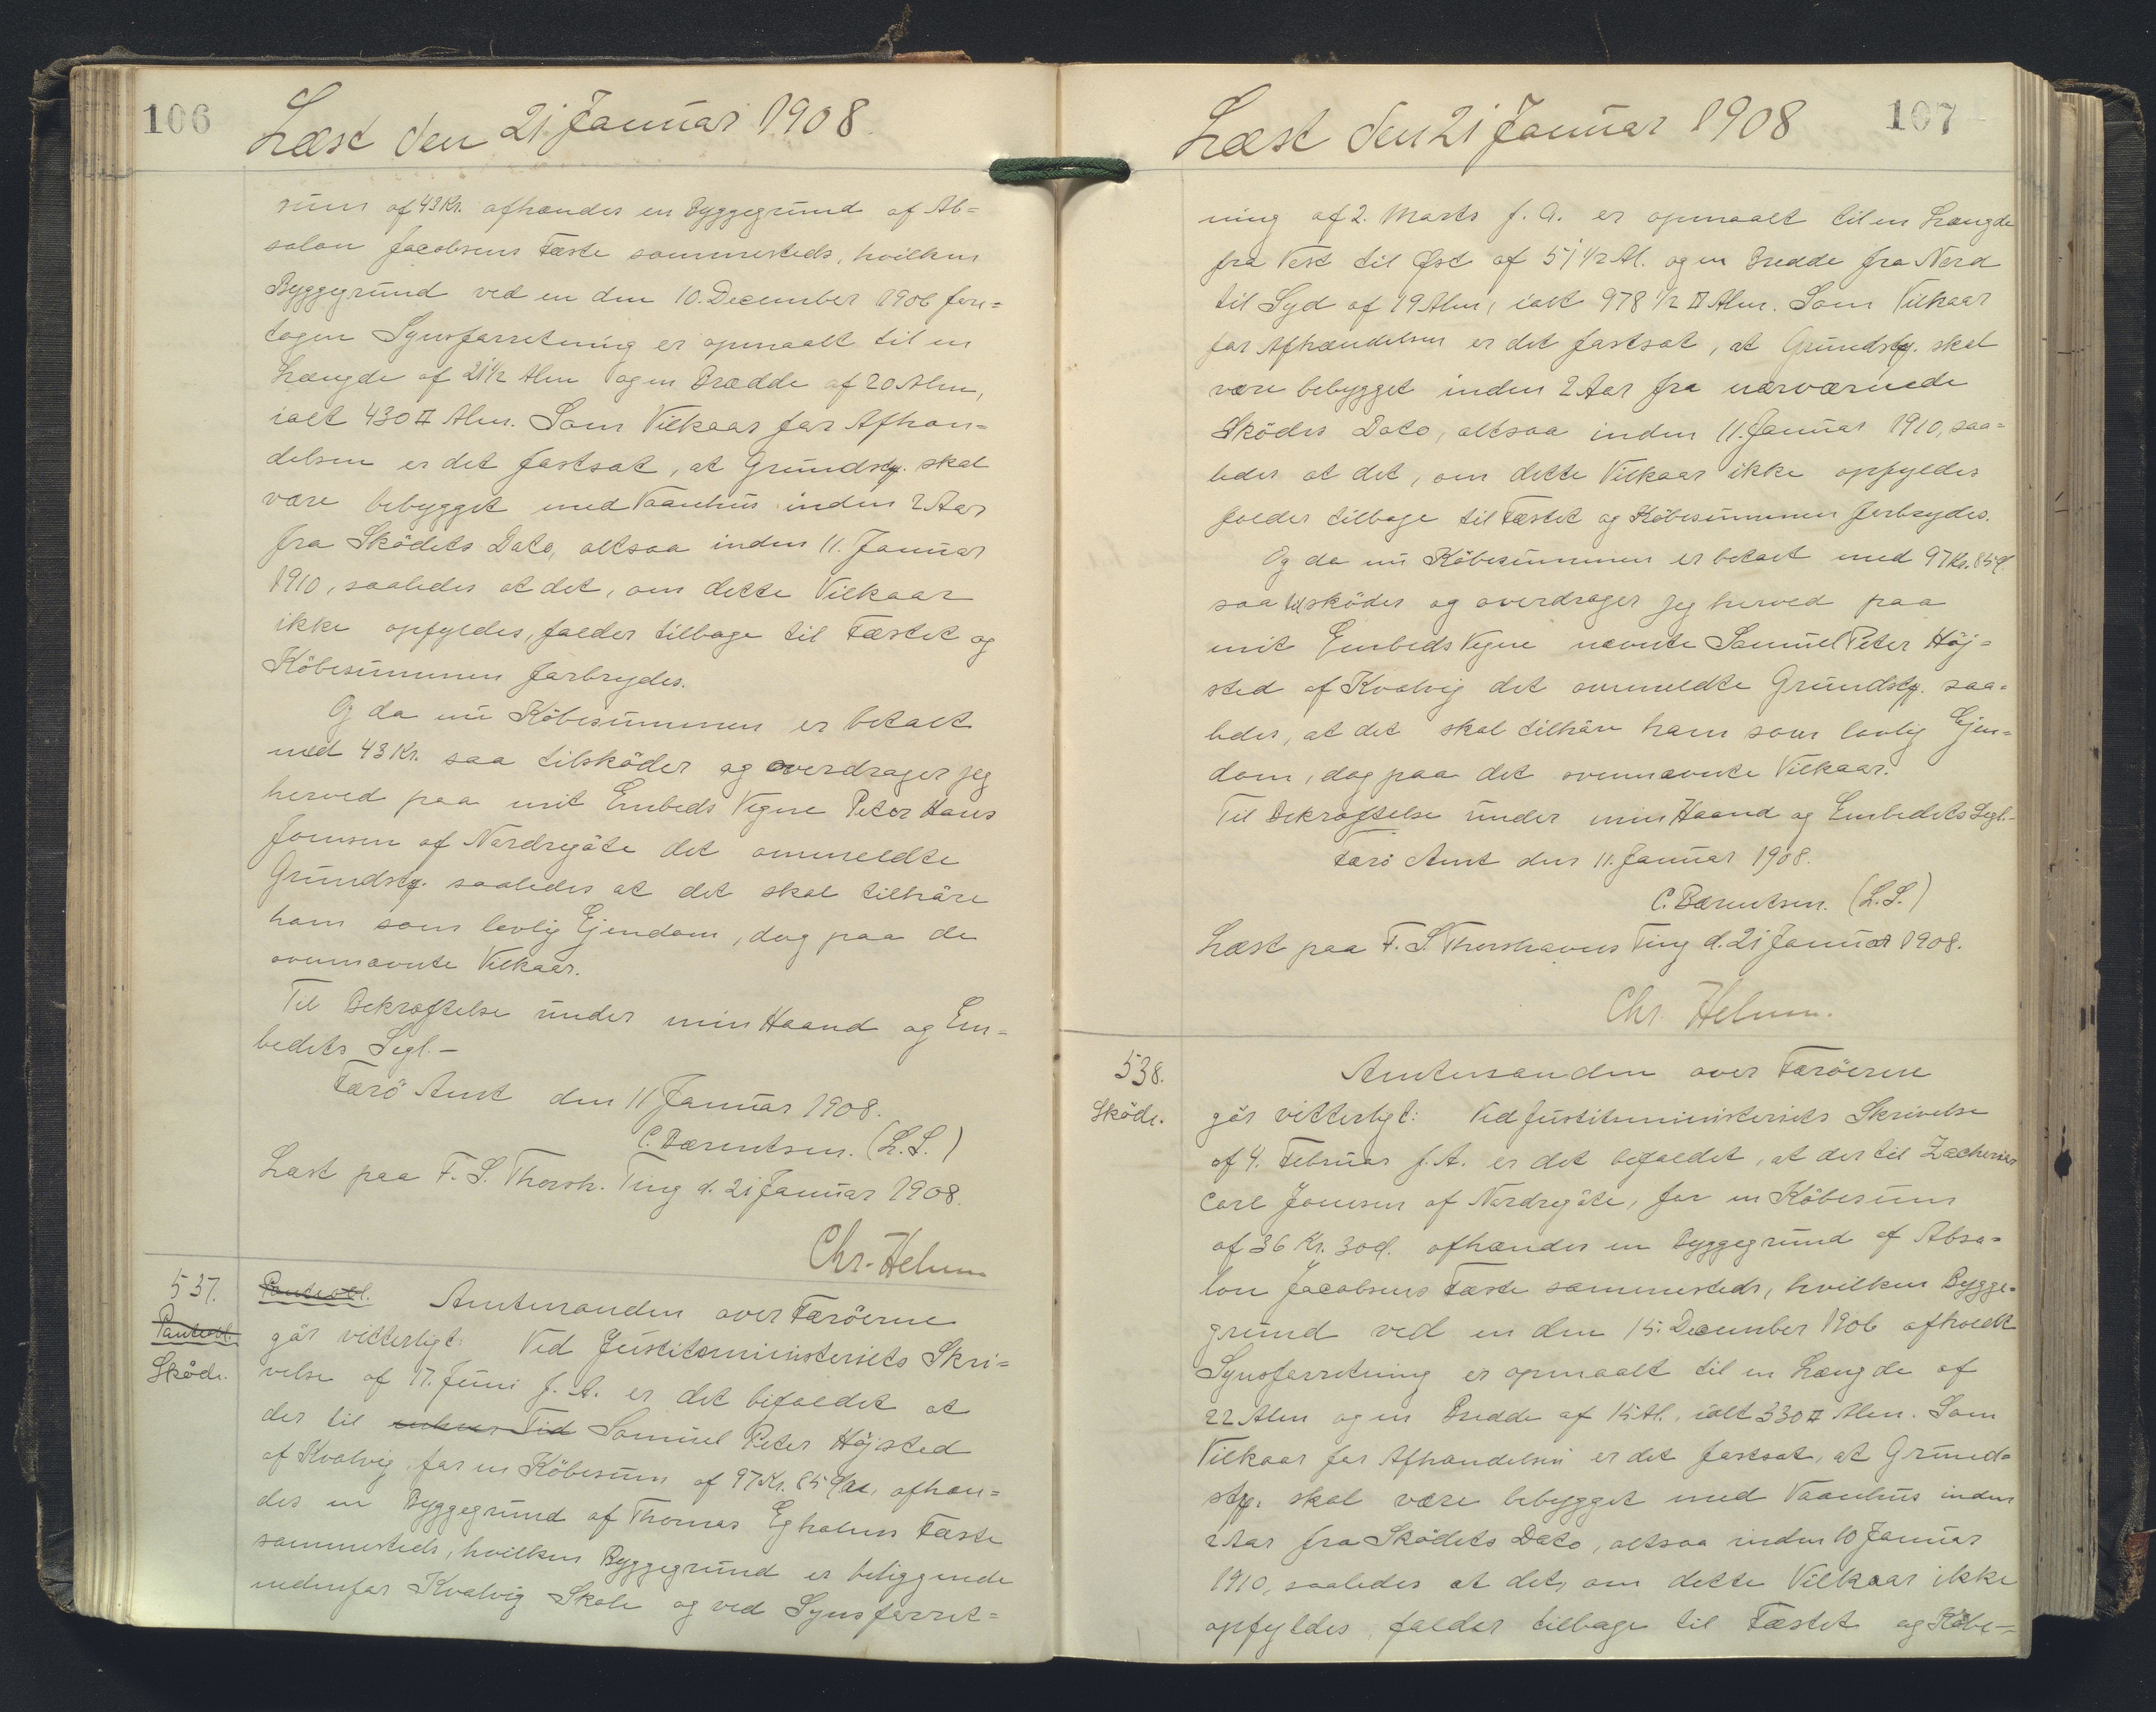 106
Læst den 21 Januar 1908.
sum af 43 Kr. afhændes en Byggegrund af Ab=
salon Jacobsens Fæste sammesteds, hvilken
Byggegrund ved en den 10. December 1906 fore=
tagen Synsforretning er opmaalt til en
Længde af 21½ Alen og en Bredde af 20 Alen,
ialt 430 □ Alen. Som Vilkaar for Afhæn=
delsen er det fastsat, at Grundstg. skal
være bebygget med Vaanhus inden 2 Aar
fra Sködets Dato, altsaa inden 11. Januar
1910, saaledes at det, om dette Vilkaar
ikke opfyldes, falder tilbage til Fæstet og
Köbesummen forbrydes.
Og da nu Köbesummen er betalt
med 43 Kr. saa tilsköder og overdrager jeg
herved paa mit Embeds Vegne Peter Hans
Joensen af Nordregöte det ommeldte
Grundstg. saaledes at det skal tilhöre
ham som lovlig Ejendom, dog paa de
ovennævnte Vilkaar.
Til Bekræftelse under min Haand og Em=
bedets Segl. –
Færö Amt den 11 Januar 1908.
C. Bærentsen. (L.S.)
Læst paa F. S. Thorsh. Ting d. 21 Januar 1908.
Chr. Helmn
537.
Panteobl.
Sköde.
Panteobl. Amtmanden over Færöerne
gör vitterligt: Ved Justitsministeriets Skri=
velse af 17. Juni f. A. er det bifaldet at
der til Tid Samuel Peter Höjsted
af Kvalvig for en Köbesum af 97 Kr. 85 Øre, afhæn=
des en Byggegrund af Thomas Egholms Fæste
sammesteds, hvilken Byggegrund er beliggende
nedenfor Kvalvig Skole og ved Synsforret=
Læst den 21 Januar 1908
107
ning af 2. Marts f. A. er opmaalt til en Længde
fra Vest til Øst af 51½ Al. og en Bredde fra Nord
til Syd af 19 Alen, ialt 978½ □ Alen. Som Vilkaar
for Afhændelsen er det fastsat, at Grundstg. skal
være bebygget inden 2 Aar fra nærværende
Sködes Dato, altsaa inden 11. Januar 1910, saa=
ledes at det, om dette Vilkaar ikke opfyldes
falder tilbage til Fæstet og Köbesummen forbrydes.
Og da nu Köbesummen er betalt med 97 Kr. 85 Ø.
saa tilsköder og overdrager jeg herved paa
mit Embeds Vegne nævnte Samuel Peter Höj=
sted af Kvalvig det ommeldte Grundstg. saa=
ledes, at det skal tilhöre ham som lovlig Ejen=
dom, dog paa det ovennævnte Vilkaar.
Til Bekræftelse under min Haand og Embedets Segl. –
Færö Amt den 11. Januar 1908.
C. Bærentsen. (L.S.)
Læst paa F. S. Thorshavns Ting d. 21 Januar 1908.
Chr. Helmn.
538.
Sköde.
Amtmanden over Færöerne
gör vitterligt: Ved Justitsministeriets Skrivelse
af 4. Februar f. A. er det bifaldet, at der til Zacherias
Carl Joensen af Nordregöte, for en Köbesum
af 36 Kr. 30 Ø. afhændes en Byggegrund af Absa=
lon Jacobsens Fæste sammesteds, hvilken Bygge=
grund ved en den 15. December 1906 afholdt
Synsforretning er opmaalt til en Længde af
22 Alen og en Bredde af 15 Al., ialt 330 □ Alen. Som
Vilkaar for Afhændelsen er det fastsat, at Grund=
stg. skal være bebygget med Vaanhus inden
2 Aar fra Sködets Dato, altsaa inden 10 Januar
1910, saaledes at det, om dette Vilkaar ikke
opfyldes, falder tilbage til Fæstet og Köbe=